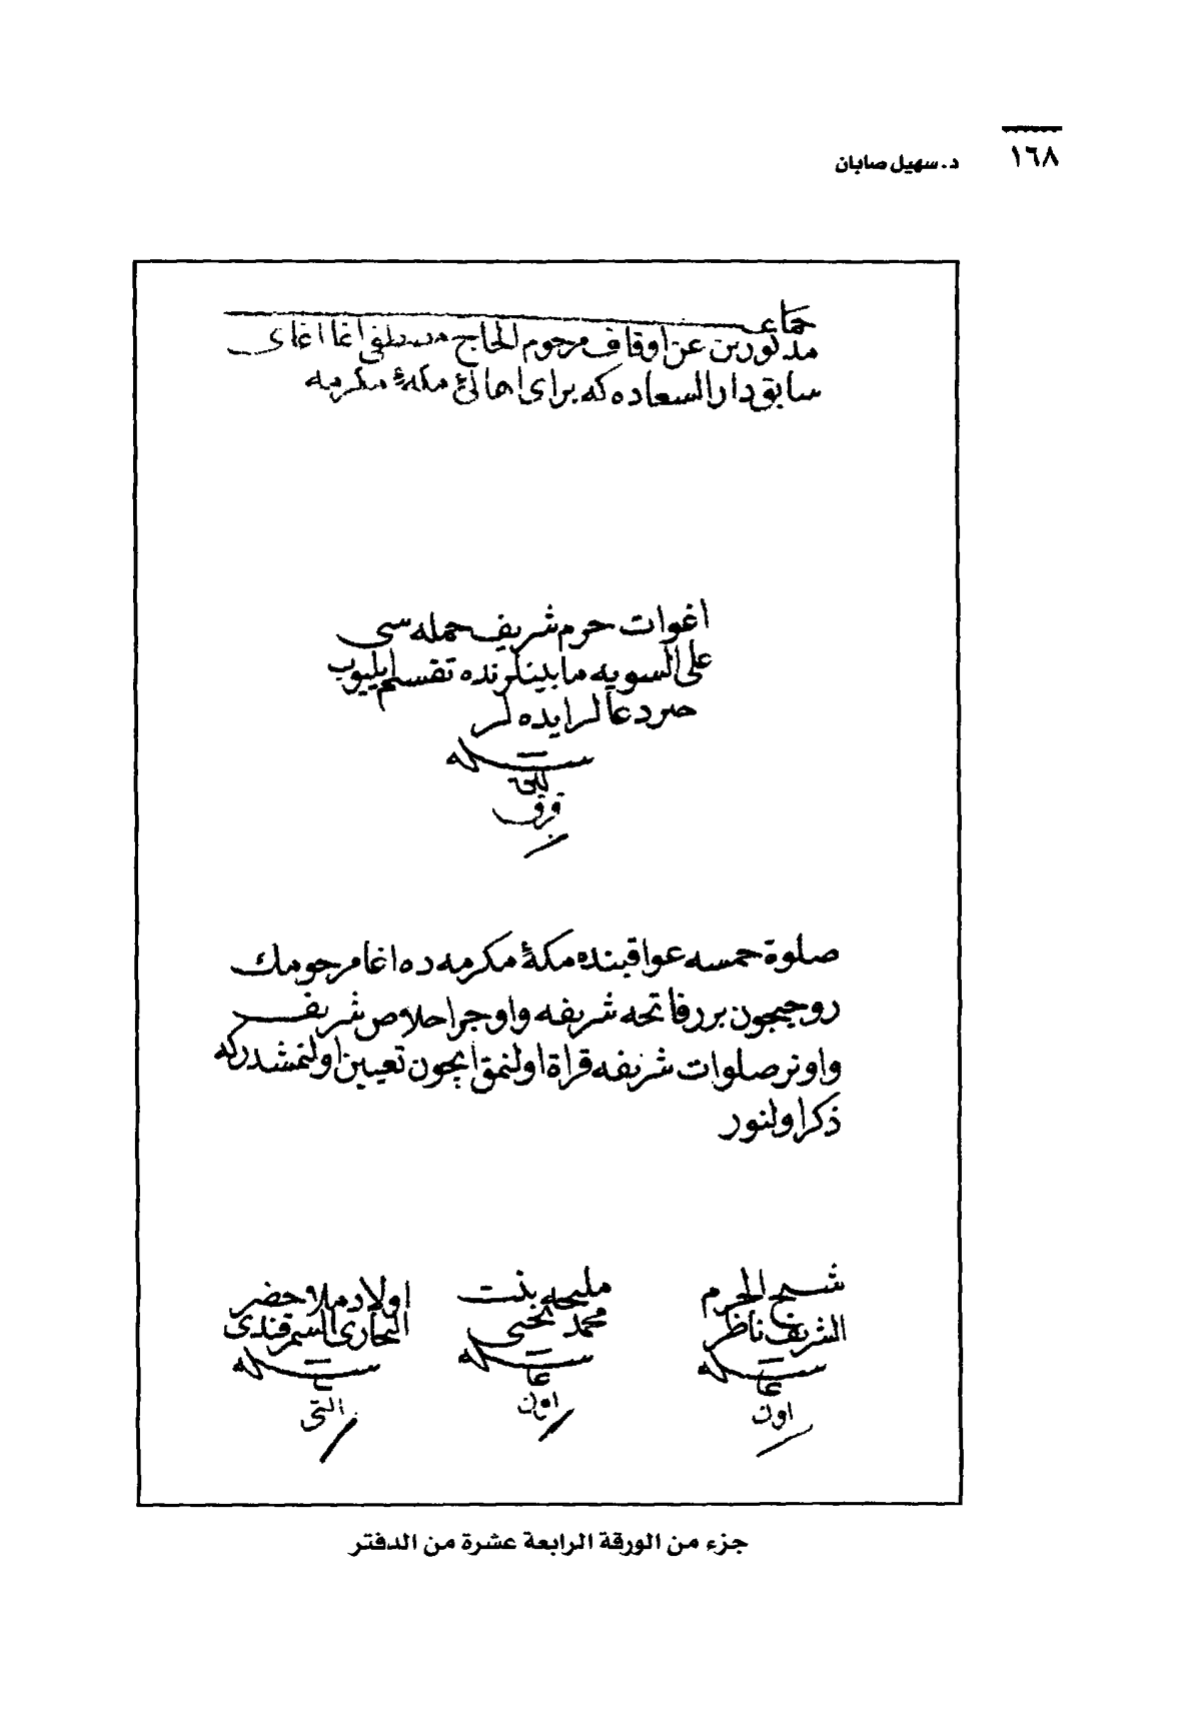 ١٦٨
د. سهيل صابان
جماعت
مذكورين عن اوقاف مرحوم الحاج مصطفى اغا اغاى
سابق دار السعاده كه براى اهالئ مكۀ مكرمه
اغوات حرم شريف جمله سى
على السويه مابينلرنده تقسيم ايليوب
خير دعالر ايده لر
سكه
فرق
صلوة خمسه عواقبنده مكۀ مكرمه ده اغا مرحومك
روحيچون بر فاتحه شريفه واوچر اخلاص شريف
واونر صلوات شريفه قراة اولنمق ايچون تعيين اولنمشدركه
ذكر اولنور
شيخ الحرم
الشريف ناظر
سكه
اون
مليحه بنت
محمد يحيى
سكه
اون
اولاد ملا خضر
البخارى السمرقندى
سكه
التى
جزء من الورقة الرابعة عشرة من الدفتر